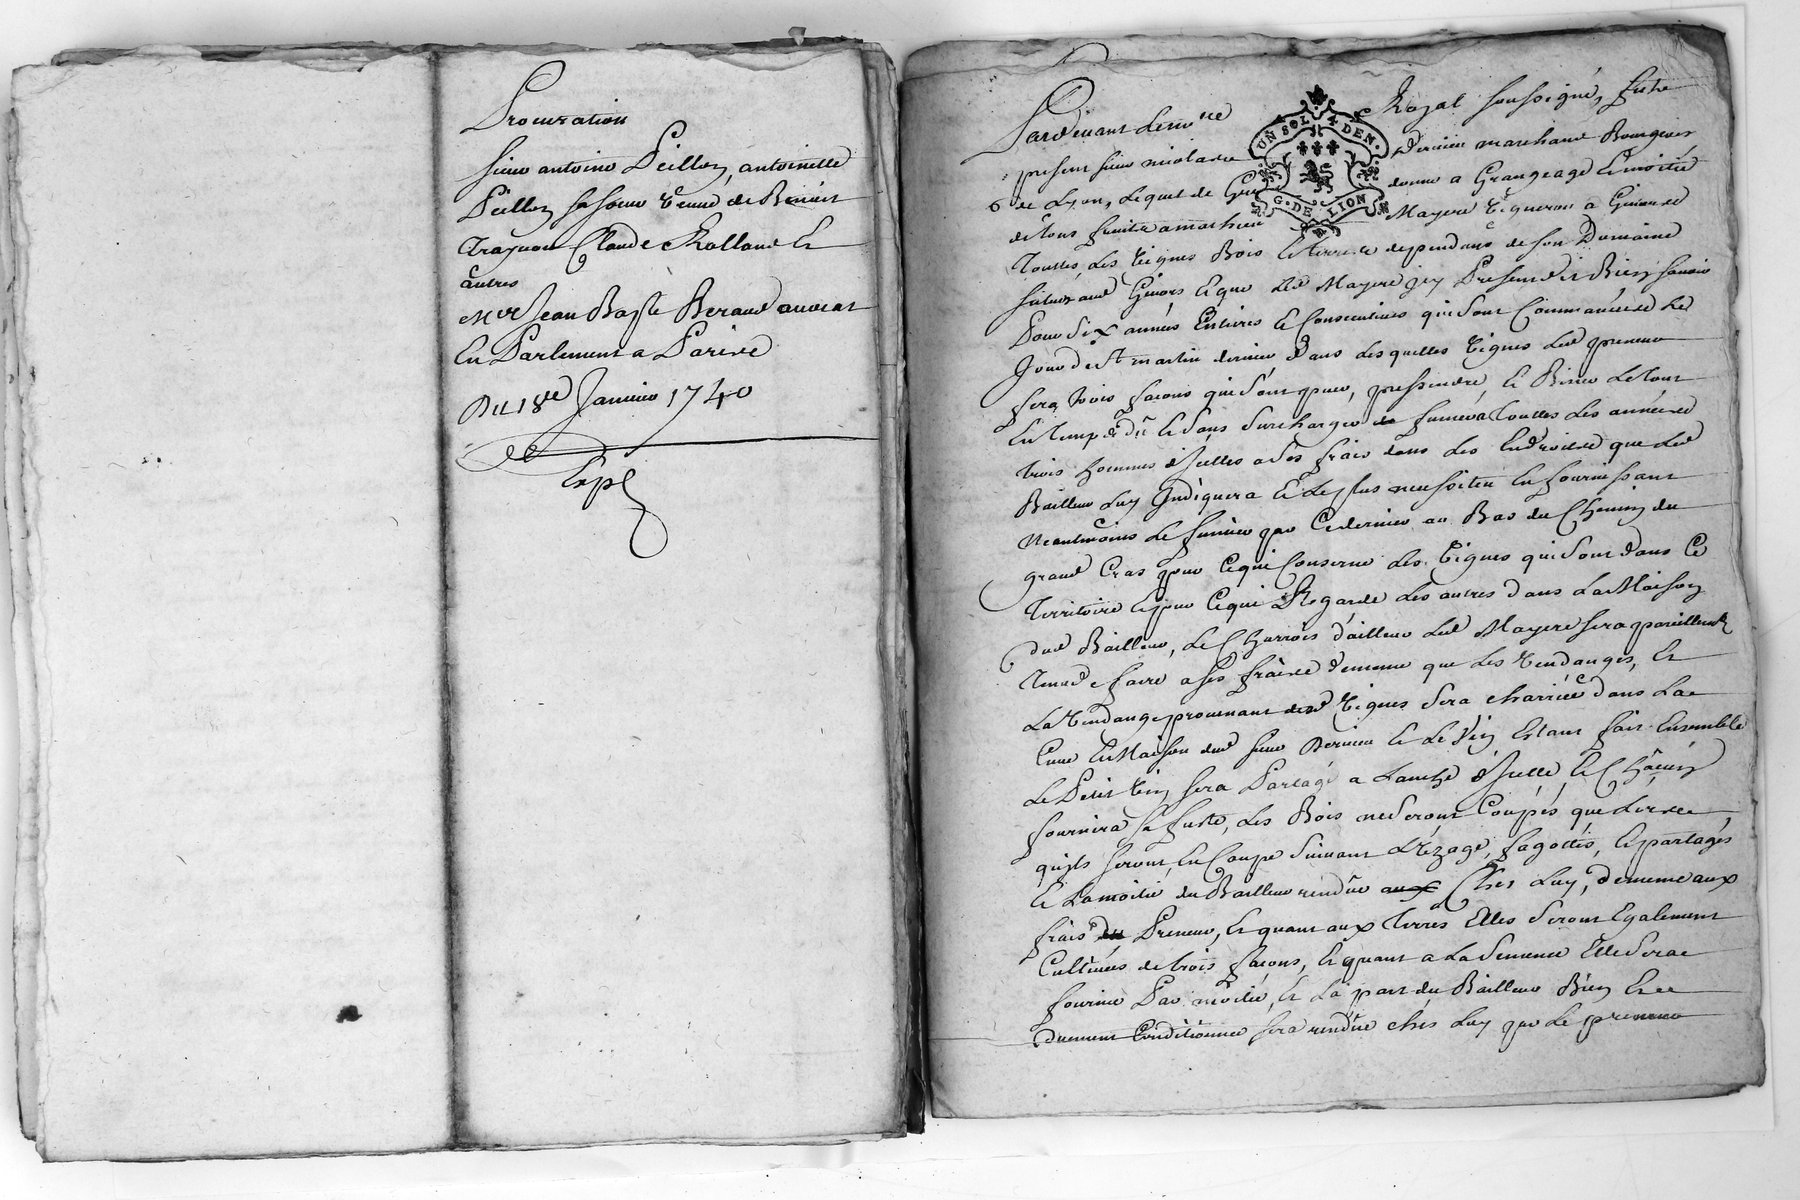 Procuration
sieur antoine Peillon, antoinette
Peillon sa soeur veuve de Benoist
Claude Rolland Et
autres
Mre Jean Bapte Beraud avocat
En Parlement a Paris
Du 18e Janvier 1740
Expé
Pardevant Le nore Royal soussigné, fut
present sieur nicolas Dervieu marchand Bourgeois
de Lyon, Lequel de Gré donne a Grangeage Et moitié
de tous fruits a mathieu Mayere Vigneron a
Toutes Les Vignes Bois Et terres dependans de son Domaine
situés aud Givors Et que Led Mayere icy Present dit Bien savoir
Pour six années Entieres Et Consecutives qui sont Commancées Le
Jour de st martin dernier dans Lesquelles Vignes Led preneur
fera trois façons qui sont Et Biner Le tout
En temps dû Et sans surcharger fumera Toutes Les années
trois hommes d'Icelles a ses frais dans Les Endroits que Led
Bailleur Luy Indiquera Et Le plus En fournissant
Neantmoins Le fumier par Ce dernier au Bas du Chemin du
grand Cras pour Ce qui Concerne Les Vignes qui sont dans Ce
Territoire Et pour Ce qui Regarde Les autres dans La Maison
dud Bailleur, Le Charrois d'ailleurs Led Mayere sera pareillemt
Tenu de faire a ses frais de meme que Les Vendanges, Et
La Vendange provenant desd Vignes sera charriée dans La
Cuve Et Maison dud sieur Dervieu Et Le Vin Estant fait Ensemble
Le Petit Vin sera Partagé a Lanche d'Icelle, Et Chacun
fournira sa fuste, Les Bois ne seront Coupés que Lors
qu'ils seront En Coupe suivant L'Uzage, fagottés, Et partagés
Et La moitié du Bailleur rendüe aux Chez Luy, de meme aux
frais du Preneur, Et quant aux Terres Elles seront Egalement
Cultivées de trois façons, Et quant a La semence Elle sera
fournie Par moitié, Et La part du Bailleur Bien Et
duement Conditionnée sera rendüe chés Luy par Le preneur
UN SOL 4 DEN.
G. DE LION